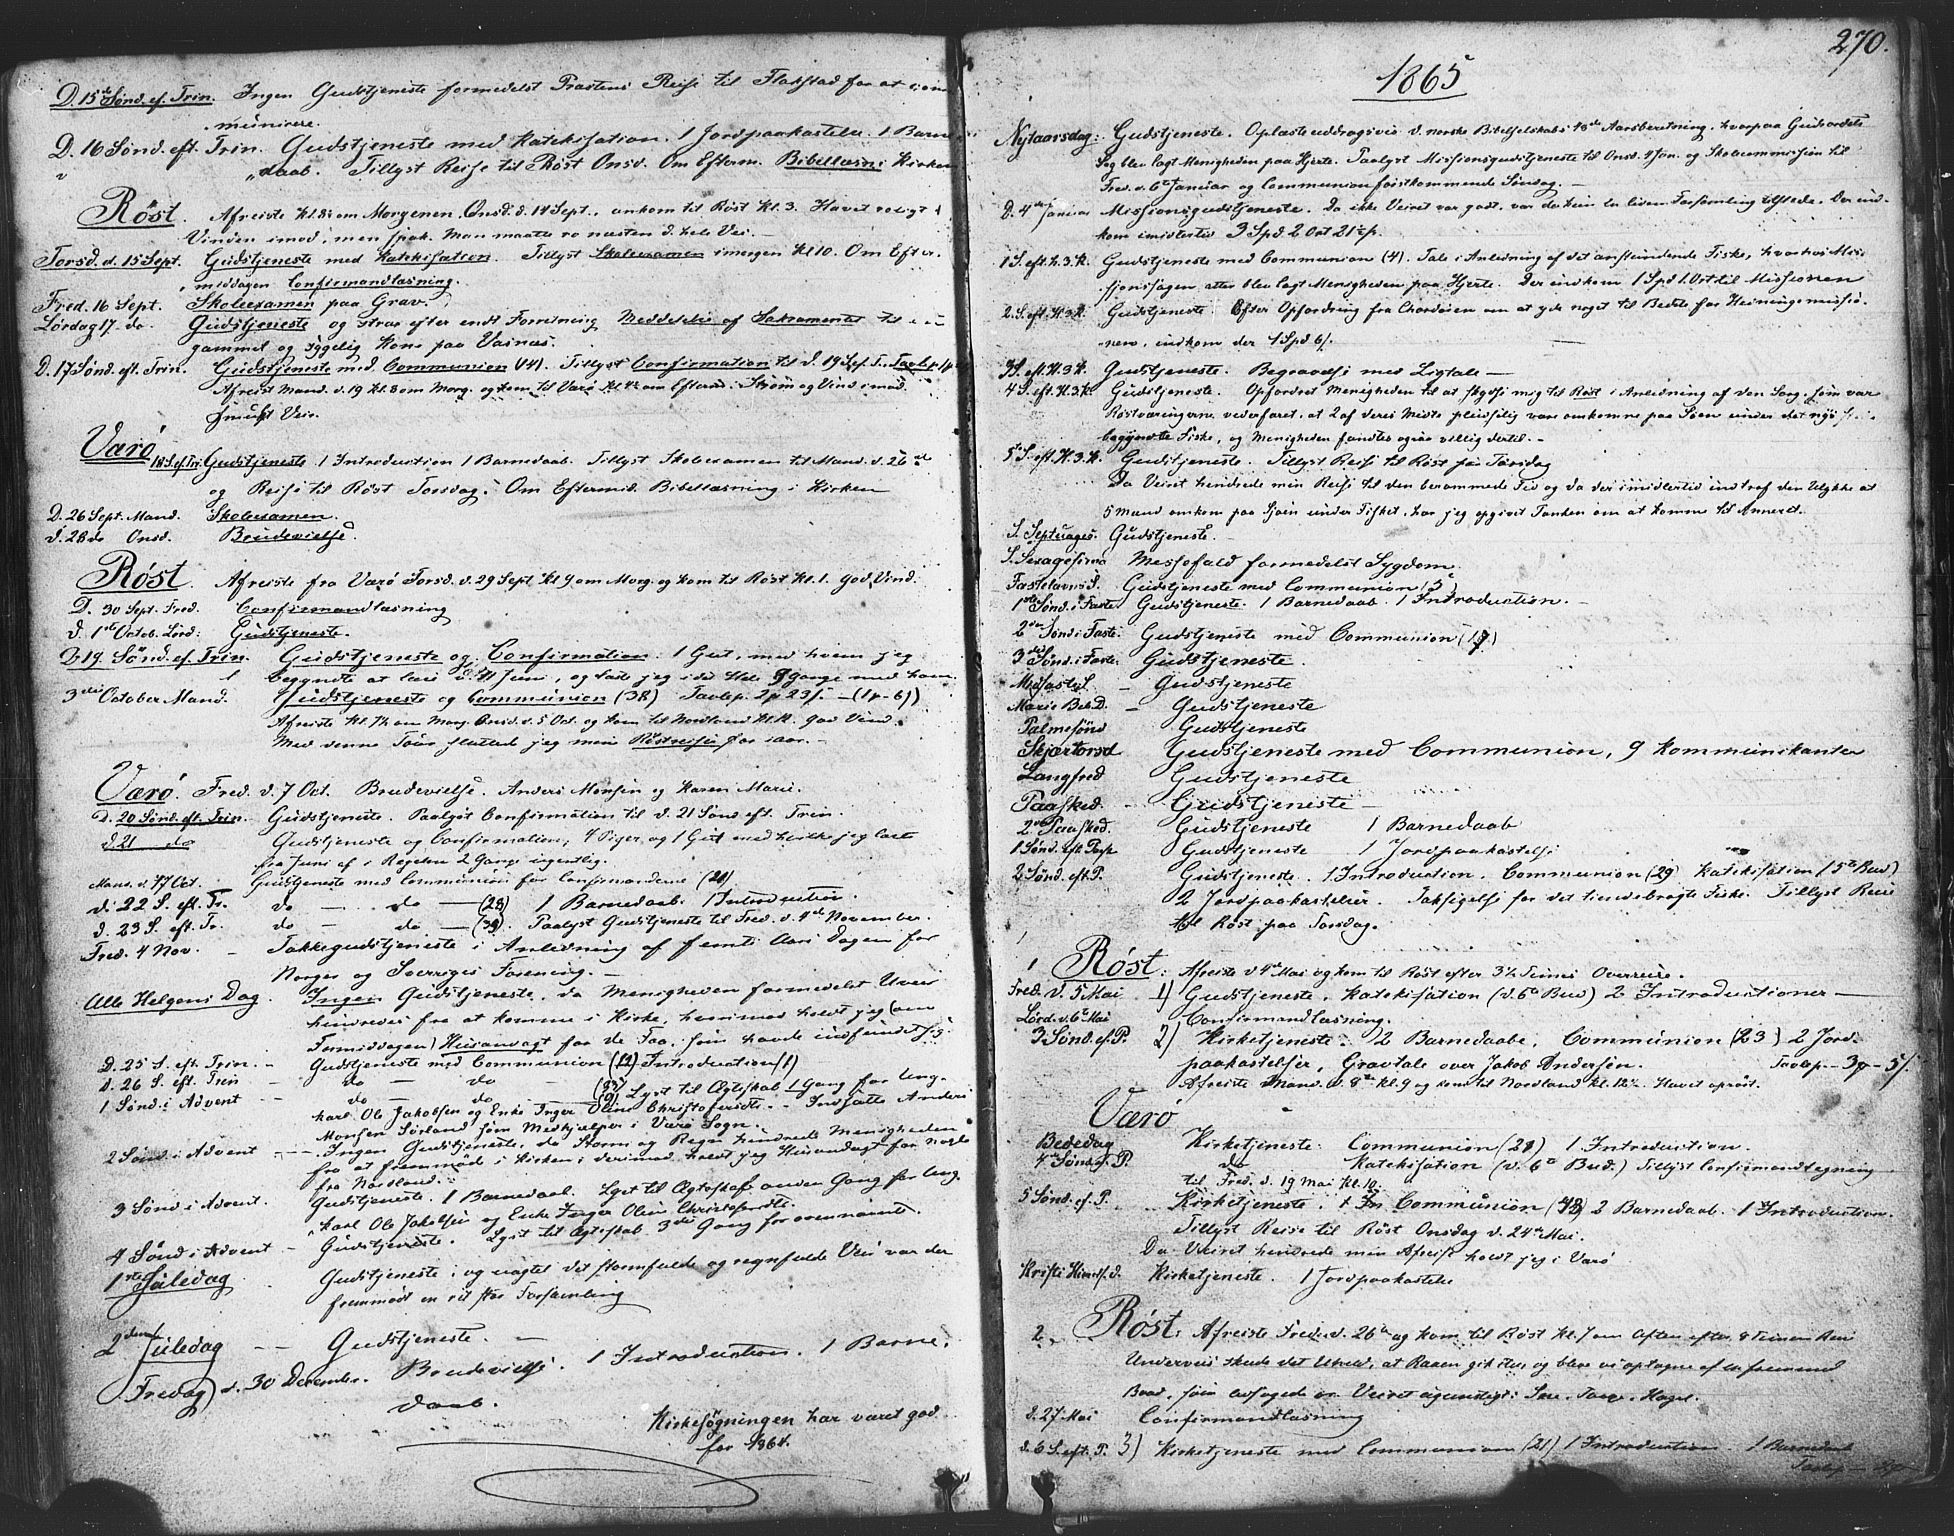 D. 15de Sønd. ef. Trin. Ingen Gudstjeneste formedelst Prastens Reise til Flakstad for at com
municere.
D. 16 Sønd. eft. Trin. Gudstjeneste med Katekisation. 1 Jordpaakastelse. 1 Barne
daab. Tillyst Reise til Røst Onsd. Om Efterm. Bibellæsn. i Kirken
Røst. Afreiste Kl. 8 om Morgenen Onsd. d. 14 Sept., ankom til Røst Kl. 3. Havet roligt
Vinden imod, men spak. Man maatte ro næsten d. hele Vei. -
Torsd. d. 15 Sept. Gudstjeneste med Katekisation. Tillyst Skoleexamen imorgen Kl 10. Om Efter
middagen Confirmandlæsning.
Fred. 16 Sept. Skoleexamen paa Grav.
Lördag 17 do. Gudstjeneste og strax efter endt Forretning Meddelelse af Sakramentet til en
gammel og sygelig Kone paa Vasnæs.
D. 17 Sønd. eft. Trin. Gudstjeneste med Communion (14). Tillyst Confirmation til d. 19 S. ef. T. Tavlep.
Afreist Mand. d. 19 Kl. 8 om Morg. og kom til Værø Kl. 4½ om Efterm. Strøm og Vind imod.
Smukt Veir.
Værø
18 S. ef. Tri. Gudstjeneste 1 Introduction 1 Barnedaab. Tillyst Skoleexamen til Mand. d. 26de
og Reise til Røst Torsdag. Om Eftermid. Bibellæsning i Kirken
D. 26 Sept. Mand. Skoleexamen.
d. 28 do Onsd. Brudevielse.
Røst. Afreiste fra Værø Torsd. d. 29 Sept. Kl 9 om Morg. og kom til Røst Kl. 1. God Vind.
D. 30 Sept. Fred. Confirmandlæsning
d. 1ste Octob. Lørd: Gudstjeneste.
D. 19 Sønd. ef. Trin. Gudstjeneste og Confirmation. 1 Gut, med hvem jeg
begyndte at læse d. 11 Juni, og læste jeg i det Hele 9 Gange med ham.
3die October Mand. Gudstjeneste og Communion (38) Tavlep. 2p 23/. - (1p - 6/)
Afreiste Kl. 7½ om Morg. Onsd. d. 5 Oct. og kom til Nordland Kl. 11. God Vind.
Med denne Tour sluttede jeg mine Røstreiser for iaar. -
Værø. Fred. d. 7 Oct. Brudevielse. Anders Monsen og Karen Marie.
D. 20 Sønd. eft. Trin. Gudstjeneste. Paalyst Confirmation til d. 21 Sønd. eft. Trin.
d. 21 do Gudstjeneste og Confirmation, 4 Piger og 1 Gut med hvilke jeg læste
fra Juni af i Regelen 2 Gange ugentlig.
Mand. d. 17 Oct. Gudstjeneste med Communion for Confirmanderne (20)
d. 22 S. eft. Tr. do - do - (28) 1 Barnedaab. 1 Introduction.
d. 23 S. eft. Tr. do - do - (30). Paalyst Gudstjeneste til Fred. d. 4de November.
Fred. 4 Nov. - Takkegudstjeneste i Anledning af femti Aars Dagen for
Norges og Sverriges Forening. -
Alle Helgens Dag. Ingen Gudstjeneste, da Menigheden formedelst Uveir
hindredes fra at komme i Kirke, hvorimod holdt jeg (om
Formiddagen) Husandagt for de Faa, som havde indfundet sig.
D. 25 S. eft. Trin. - Gudstjeneste med Communion (12) Introduction (1)
d. 26 S. eft. Trin do - do -
1 Sønd. i Advent - do - do - (9) Lyst til Ægteskab 1 Gang for Ung.
Karl Ole Jakobsen og Enke Inger Oline Christofersdtr. - Indsatte Anders
Monsen Sørland som Medhjelper i Værø Sogn.
2 Sønd. i Advent - Ingen Gudstjeneste, da Storm og Regn hindrede Menigheden
fra at fremmøde i Kirken; derimod holdt jeg Husandagt for nogle
fra Nordland.
3 Sønd. i Advent. Gudstjeneste. 1 Barnedaab. Lyst til Ægteskab anden Gang for Ung.
Karl Ole Jakobsen og Enke Inger Oline Christophersdtr.
4 Sønd. i Advent - Gudstjeneste. Lyst til Ægteskab 3die Gang for ovennævnte.
1ste Juledag Gudstjeneste; og uagtet det stormfulde og regnfulde Veir var der
fremmødt en ret stor Forsamling
2den Juledag - - Gudstjeneste. -
Fredag d. 30 December. Brudevielse. 1 Introduction. 1 Barne.
daab.
Kirkesøgningen har været god
for 1864.
270.
1865
Nytaarsdag: Gudstjeneste. Oplæste uddragsvis d. norske Bibelselskabs 48de Aarsberetning, hvorpaa Guds ordets
Sag blev lagt Menigheden paa Hjerte. Paalyst Missionsgudstjeneste til Onsd. 4 Jan. og Skolecommission til
Fred. d. 6te Januar og Communion førstkommende Søndag. -
D. 4de Januar Missionsgudstjeneste. Da ikke Veiret var godt, var der kun en liden Forsamling tilstede. Der ind-
kom imidlertid 3 Spd. 2 Ort 21 sp.
1 S. eft. H. 3. K. Gudstjeneste med Communion (4). Tale i Anledning af det anstundende Fiske, hvorhos Mis-
sjonssagen atter blev lagt Menigheden paa Hjerte. Der indkom 1 Spd 1 Ort til Missionen
2. S. eft. H. 3 K. Gudstjeneste. Efter Opfordring fra Chordøren om at yde noget til Bedste for Hedningemissio-
nen, indkom der 1 Spd 6/.
3 S. eft. H. 3 K. Gudstjeneste. Begravelse med Ligtale -
4 S. eft. H. 3. K. Gudstjeneste. Opfordret Menigheden til at skydse mig til Røst i Anledning af den Sorg, som var
Røstværingerne vederfaret, at 2 af deres Mænd pludselig vare omkomne paa Søen under det nys
begyndte Fiske, og Menigheden fandtes ogsaa villig dertil. -
5te S. eft. H. 3. K. Gudstjeneste. Tillyst Reise til Røst paa Torsdag
Da Veiret hindrede min Reise til den berammede Tid og da der imidlertid indtraf den Ulykke at
5 Mand omkom paa Sjøen under Fisket, har jeg opgivet Tanken om at komme til Annexet.
S. Septuages. Gudstjeneste.
S. Sexagesima Messefald formedelst Sygdom.
Fastelavns S. Gudstjeneste med Communion (5)
1ste Sønd. i Faste Gudstjeneste. 1 Barnedaab. 1 Introduction. -
2den Sønd i Faste. Gudstjeneste med Communion (19)
3die Sønd. i Faste. Gudstjeneste.
Midfaste S. - Gudstjeneste
Mariæ Beb. D. - Gudstjeneste
Palmesønd Gudstjeneste
Skjærtorsd Gudstjeneste med Communion, 9 Kommunikanter
Langfred Gudstjeneste
Paasked. - Gudstjeneste -
2. Paasked. Gudstjeneste 1 Barnedaab
1 Sønd. eft. Paask Gudstjeneste 1 Jordpaakastelse
2 Sønd. eft. P. Gudstjeneste. 1 Introduction. Communion (29) Katekisation (5te Bud)
2 Jordpaakastelser. Taksigelse for det tilendebragte Fiske. Tillyst Reise
til Røst paa Torsdag.
1 Røst: Afreiste d. 4de Mai og kom til Røst efter 3½ Times Overreise.
Fred. d. 5 Mai 1) Gudstjeneste. Katekisation (d. 6te Bud) 2 Introductioner -
Lørd. d. 6te Mai Confirmandlæsning.
3 Sønd. ef. P. 2) Kirketjeneste. 2 Barnedaabe. Communion (23) 2 Jord-
paakastelser, Gravtale over Jakob Andersen. Tavlep - 3p - 5/.
Afreiste Mand. d. 8de kl. 9 og kom til Nordland kl. 12½. Havet oprørt.
Værø
Bededag Kirketjeneste. Communion (28) 1 Introduction.
4de Sønd. ef. P. do Katekisation (d. 6te Bud.) Tillyst Confirmandlæsning
til Fred. d. 19 Mai Kl. 10.
5 Sønd. ef. P. Kirketjeneste. Communion (43) 2 Barnedaab. 1 Introduction.
Tillyst Reise til Røst Onsdag d. 24de Mai.
Da Veiret hindrede min Afreise holdt jeg i Værø
Kristi Himmelf. d. Kirketjeneste. 1 Jordpaakastelse
2. Røst. Afreiste Fred. d. 26de og kom til Røst Kl. 7 om Aften efter 8 Timers Reise
Underveis skede det Uheld, at Raaen gik itu, og bleve vi optagne af en fremmed
Baad, som avsagede os Veiret ugunstigt: Sne. Taage. Hagel.
d. 27 Mai Confirmandlæsning
d. 6 S. eft. P. 3) Kirketjeneste med Communion (21) 1 Introduction 1 Barnedaab
Tavlep -